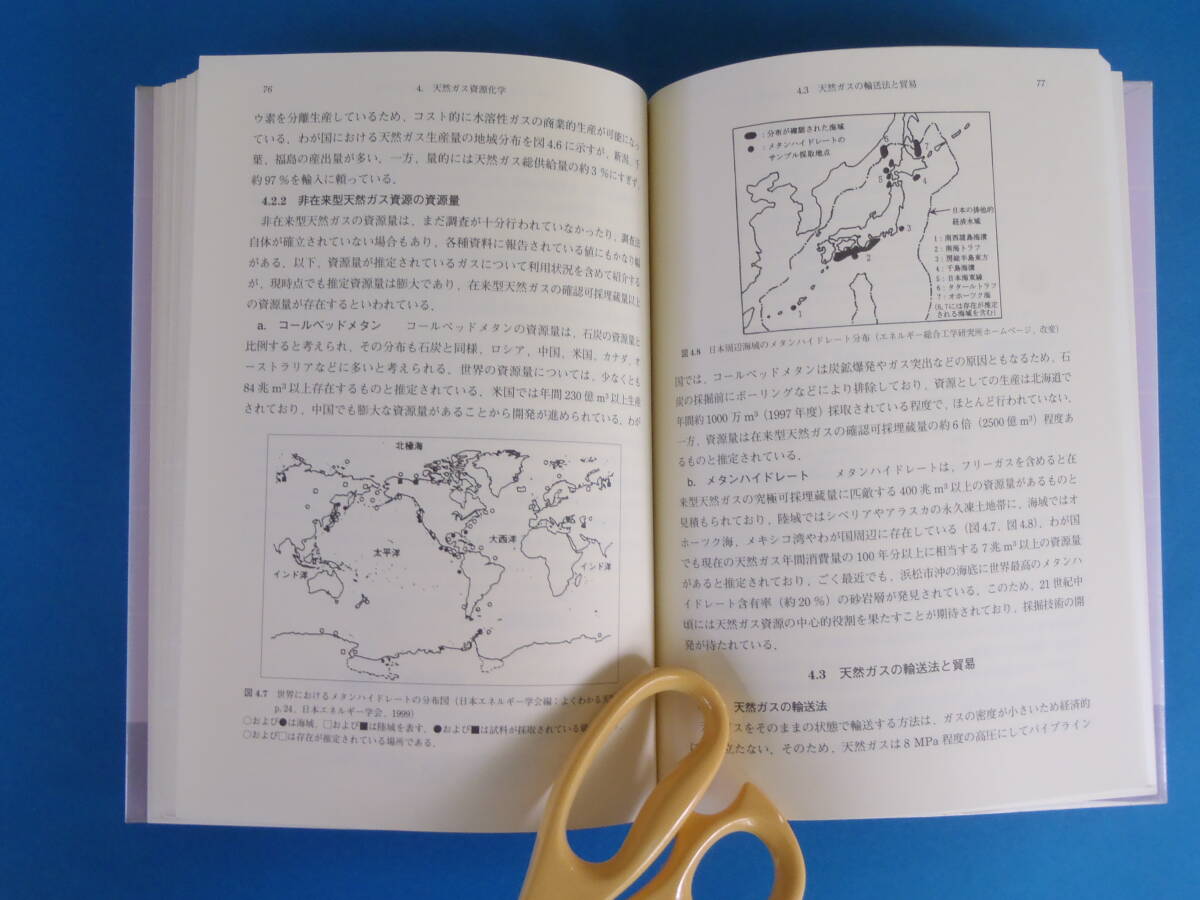 76
4. 天然ガス資源化学
ウ素を分離生産しているため，コスト的に水溶性ガスの商業的生産が可能になっ
ている．わが国における天然ガス生産量の地域分布を図4.6に示すが，新潟，千
葉，福島の産出量が多い．一方，量的には天然ガス総供給量の約3％にすぎず，
約97％を輸入に頼っている．
4.2.2 非在来型天然ガス資源の資源量
非在来型天然ガスの資源量は，まだ調査が十分行われていなかったり，調査法
自体が確立されていない場合もあり，各種資料に報告されている値にもかなり幅
がある．以下，資源量が推定されているガスについて利用状況を含めて紹介する
が，現時点でも推定資源量は膨大であり，在来型天然ガスの確認可採埋蔵量以上
の資源量が存在するといわれている．
a. コールベッドメタン　コールベッドメタンの資源量は，石炭の資源量と
比例すると考えられ，その分布も石炭と同様，ロシア，中国，米国，カナダ，オ
ーストラリアなどに多いと考えられる．世界の資源量については，少なくとも
84兆m³以上存在するものと推定されている．米国では年間230億m³以上生産
されており，中国でも膨大な資源量があることから開発が進められている．わが
北極海
太平洋
大西洋
インド洋
インド洋
図4.7 世界におけるメタンハイドレートの分布図（日本エネルギー学会編：よくわかる天
p.24，日本エネルギー学会，1999）
○および●は海域，□および■は陸域を表す．●および■は試料が採取されている
○および□は存在が推定されている場所である．
4.3 天然ガスの輸送法と貿易
77
：分布が確認された海域
：メタンハイドレートの
サンプル採取地点
6
7
5
4
3
2
1
日本の排他的
経済水域
1：南西諸島海溝
2：南海トラフ
3：房総半島東方
4：千島海溝
5：日本海東縁
6：タタールトラフ
7：オホーツク海
(6,7には存在が推定
される海域を含む)
図4.8 日本周辺海域のメタンハイドレート分布（エネルギー総合工学研究所ホームページ，改変）
国では，コールベッドメタンは炭鉱爆発やガス突出などの原因ともなるため，石
炭の採掘前にボーリングなどにより排除しており，資源としての生産は北海道で
年間約1000万m³（1997年度）採取されている程度で，ほとんど行われていない．
一方，資源量は在来型天然ガスの確認可採埋蔵量の約6倍（2500億m³）程度あ
るものと推定されている．
b. メタンハイドレート　メタンハイドレートは，フリーガスを含めると在
来型天然ガスの究極可採埋蔵量に匹敵する400兆m³以上の資源量があるものと
見積もられており，陸域ではシベリアやアラスカの永久凍土地帯に，海域ではオ
ホーツク海，メキシコ湾やわが国周辺に存在している（図4.7，図4.8）．わが国
でも現在の天然ガス年間消費量の100年分以上に相当する7兆m³以上の資源量
があると推定されており，ごく最近でも，浜松市沖の海底に世界最高のメタンハ
イドレート含有率（約20％）の砂岩層が発見されている．このため，21世紀中
頃には天然ガス資源の中心的役割を果たすことが期待されており，採掘技術の開
発が待たれている．
4.3 天然ガスの輸送法と貿易
天然ガスの輸送法
スをそのままの状態で輸送する方法は，ガスの密度が小さいため経済的
立たない．そのため，天然ガスは8 MPa程度の高圧にしてパイプライン